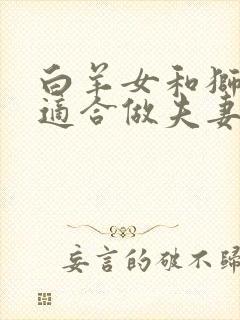 白羊女和獅
適合做夫妻
妄言的破不歸